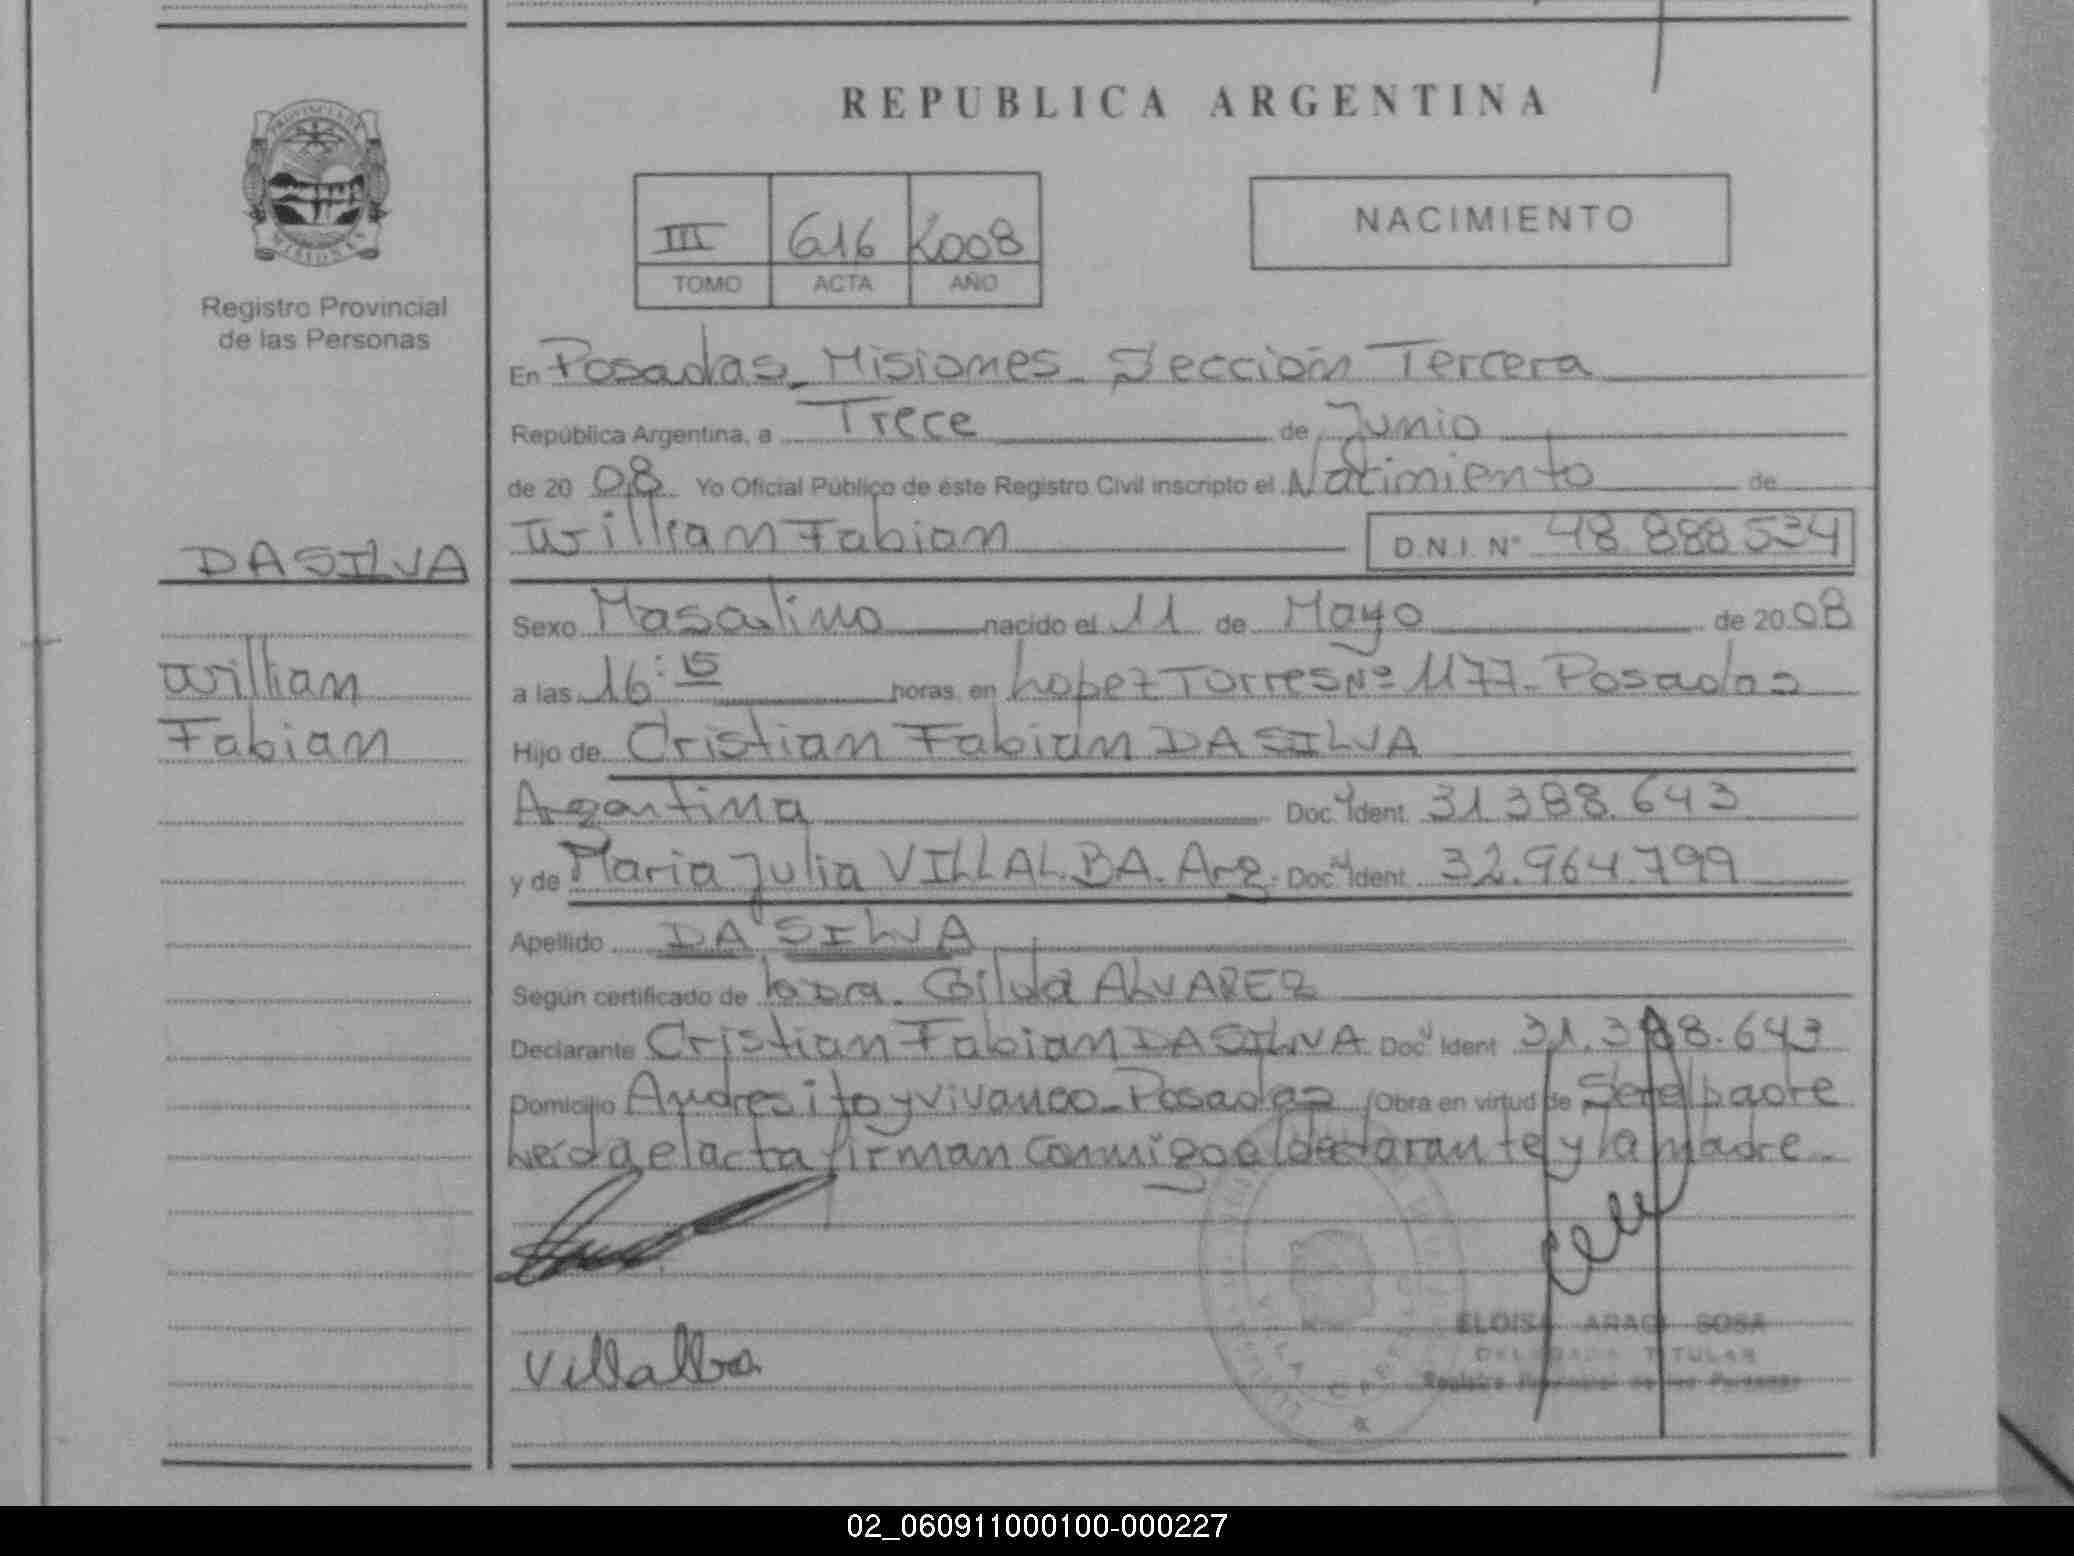 REPUBLICA ARGENTINA
PROVINCIA DE
MISIONES
Registro Provincial
de las Personas
III 616 2008
TOMO ACTA AÑO
NACIMIENTO
En Posadas - Misiones - Sección Tercera
República Argentina, a Trece de Junio
de 20 08 Yo Oficial Público de éste Registro Civil inscripto el Nacimiento de
DA SILVA
Willian Fabian D.N.I. Nº 48.888.534
Sexo Masculino nacido el 11 de Mayo de 20 08
Willian
a las 16:15 horas, en Lopez Torres Nº 1177 - Posadas
Fabian
Hijo de Cristian Fabian DA SILVA
Argentina Doc. Ident. 31.388.643
y de Maria Julia VILLALBA. Arg. Doc. Ident. 32.964.799
Apellido DA SILVA
Según certificado de Dra. Gilda ALVAREZ
Declarante Cristian Fabian DA SILVA Doc. Ident 31.388.643
Domicilio Andresito y vivanco - Posadas /Obra en virtud de Ser el padre
Leída el acta firman conmigo el declarante y la madre.
Villalba
ELOISA SOSA
DELEGADA TITULAR
Registro Provincial de las Personas
02_060911000100-000227